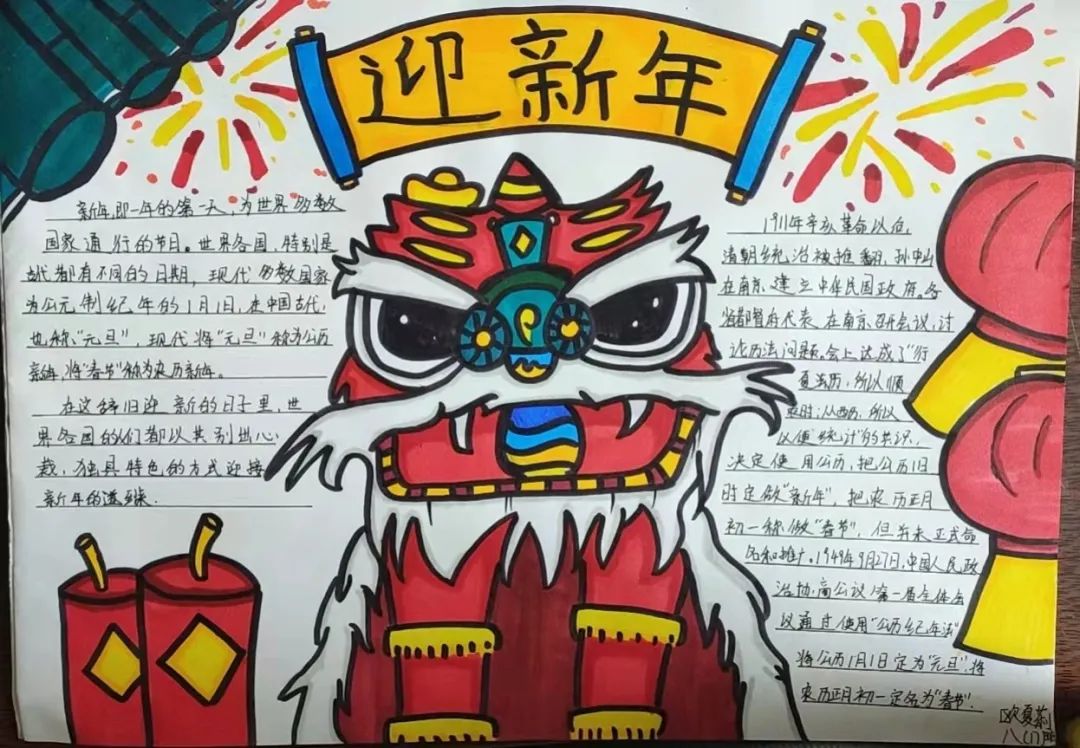 迎新年
新年,即一年的第一天,为世界多数
国家通行的节日。世界各国,特别是
古代都有不同的日期,现代多数国家
为公元制纪年的1月1日,在中国古代,
也称“元旦”,现代将“元旦”称为公历
新年,将“春节”称为农历新年。
在这辞旧迎新的日子里,世
界各国的们都以其别出心
裁,独具特色的方式迎接
新年的到来.
1911年辛亥革命以后,
清朝统治被推翻,孙中山
在南京建立中华民国政府。各
省都督府代表在南京召开会议,讨
论历法问题。会上达成了“行
夏历,所以顺
农时;从西历,所以
以便统计”的共识,
决定使用公历,把公历1日
时定做“新年”,把农历正月
初一称做“春节”,但并未正式命
名和推广。1949年9月27日,中国人民政
治协商会议第一届全体会
议通过使用“公历纪年法”
将公历1月1日定为“元旦”,将
农历正月初一定名为“春节”.
欧夏莉
八(1)